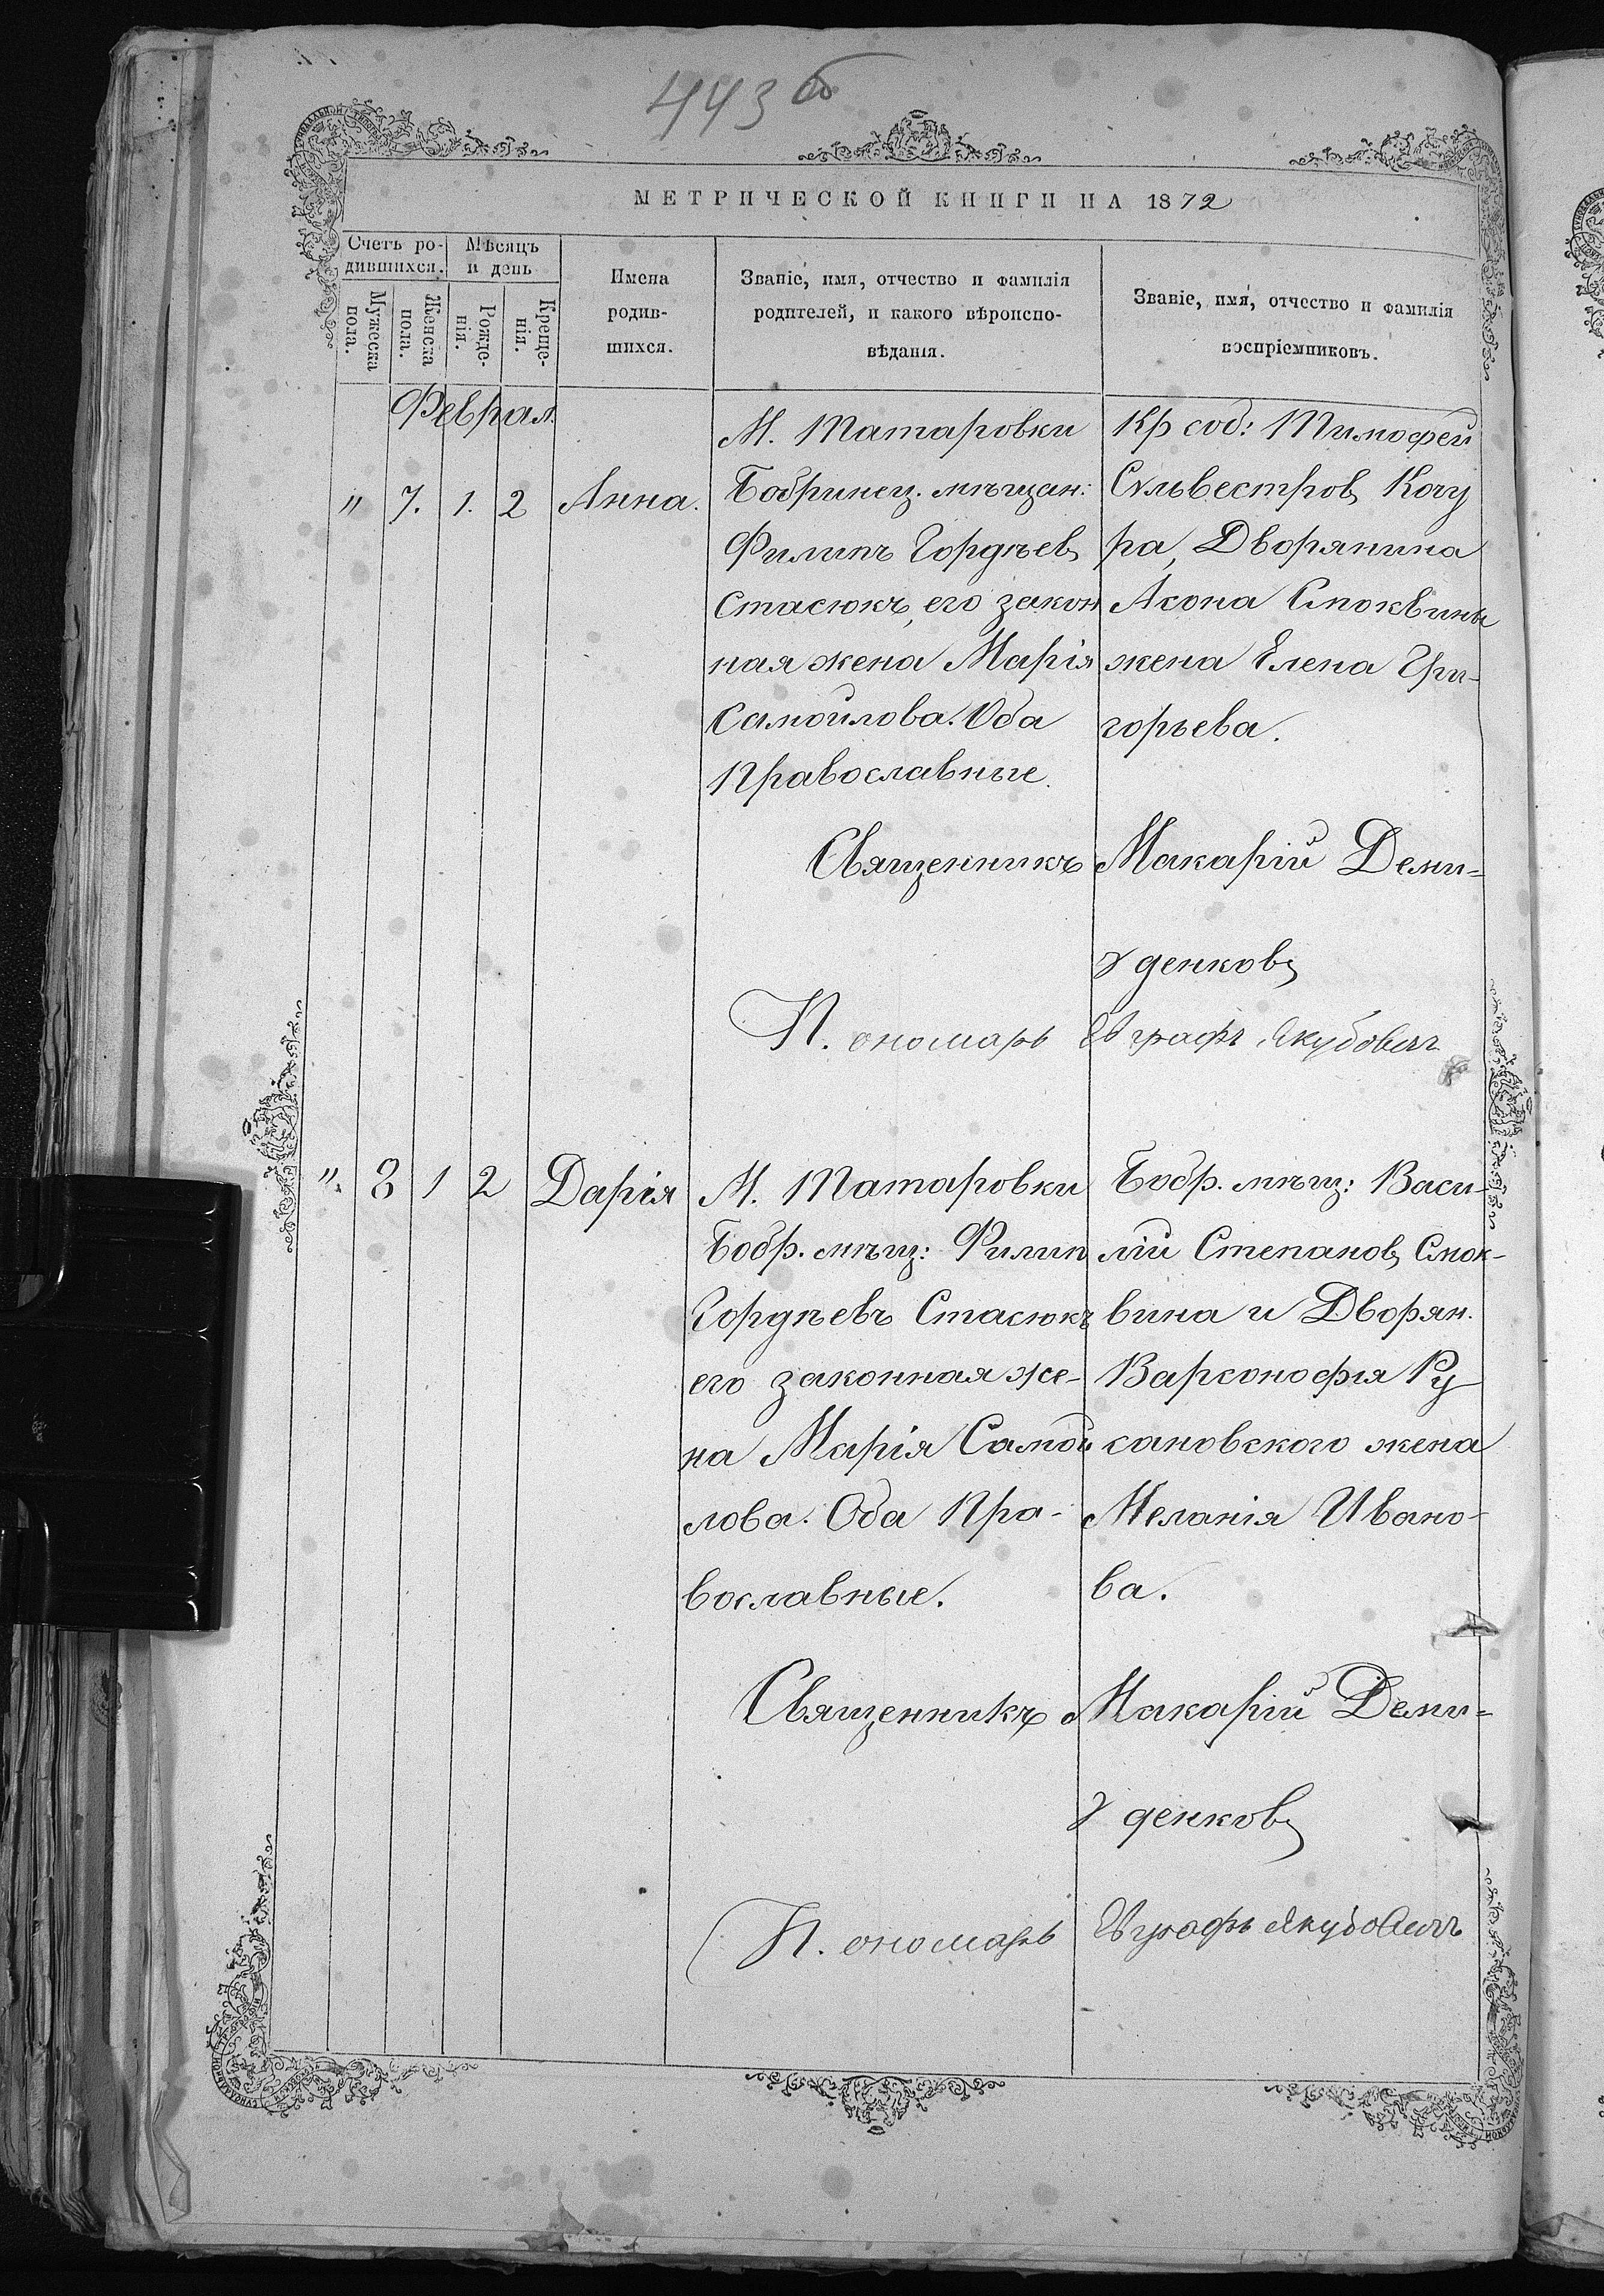 443 об
МЕТРИЧЕСКОЙ КНИГИ НА 1872
Счетъ ро-
дившихся.
Мужеска
пола.
Женска
пола.
Мѣсяцъ
и день
Рожде-
нія.
Креще-
нія.
Имена
родив-
шихся.
Званіе, имя, отчество и фамилія
родителей, и какого вѣроиспо-
вѣданія.
Званіе, имя, отчество и фамилія
воспріемниковъ.
Феврал.
" 7. 1. 2 Анна.
М. Татаровки
Бобринец. мѣщан:
Филипъ Гордѣевъ
Стасюкъ, его закон
ная жена Марія
Самойлова. Оба
Православные.
Кр соб: Тимофей
Сѵльвестровъ Кочу
ра, Дворянина
Асона Смоквины
жена Елена Гри-
горьева.
Священникъ Макарій Деми-
денковъ
П. ономарь Евграфъ Якубовичъ
" 8 1 2 Дарія
М. Татаровки
Бобр. мѣщ: Филип
Гордѣевъ Стасюкъ
его законная же-
на Марія Самой
лова. Оба Пра-
вославные.
Бобр. мѣщ: Васи-
лій Степановъ Смок-
вина и Дворян.
Варсонофія Ру
сановского жена
Меланія Ивано-
ва.
Священникъ Макарій Деми-
денковъ
П. ономарь Евграфъ Якубовичъ